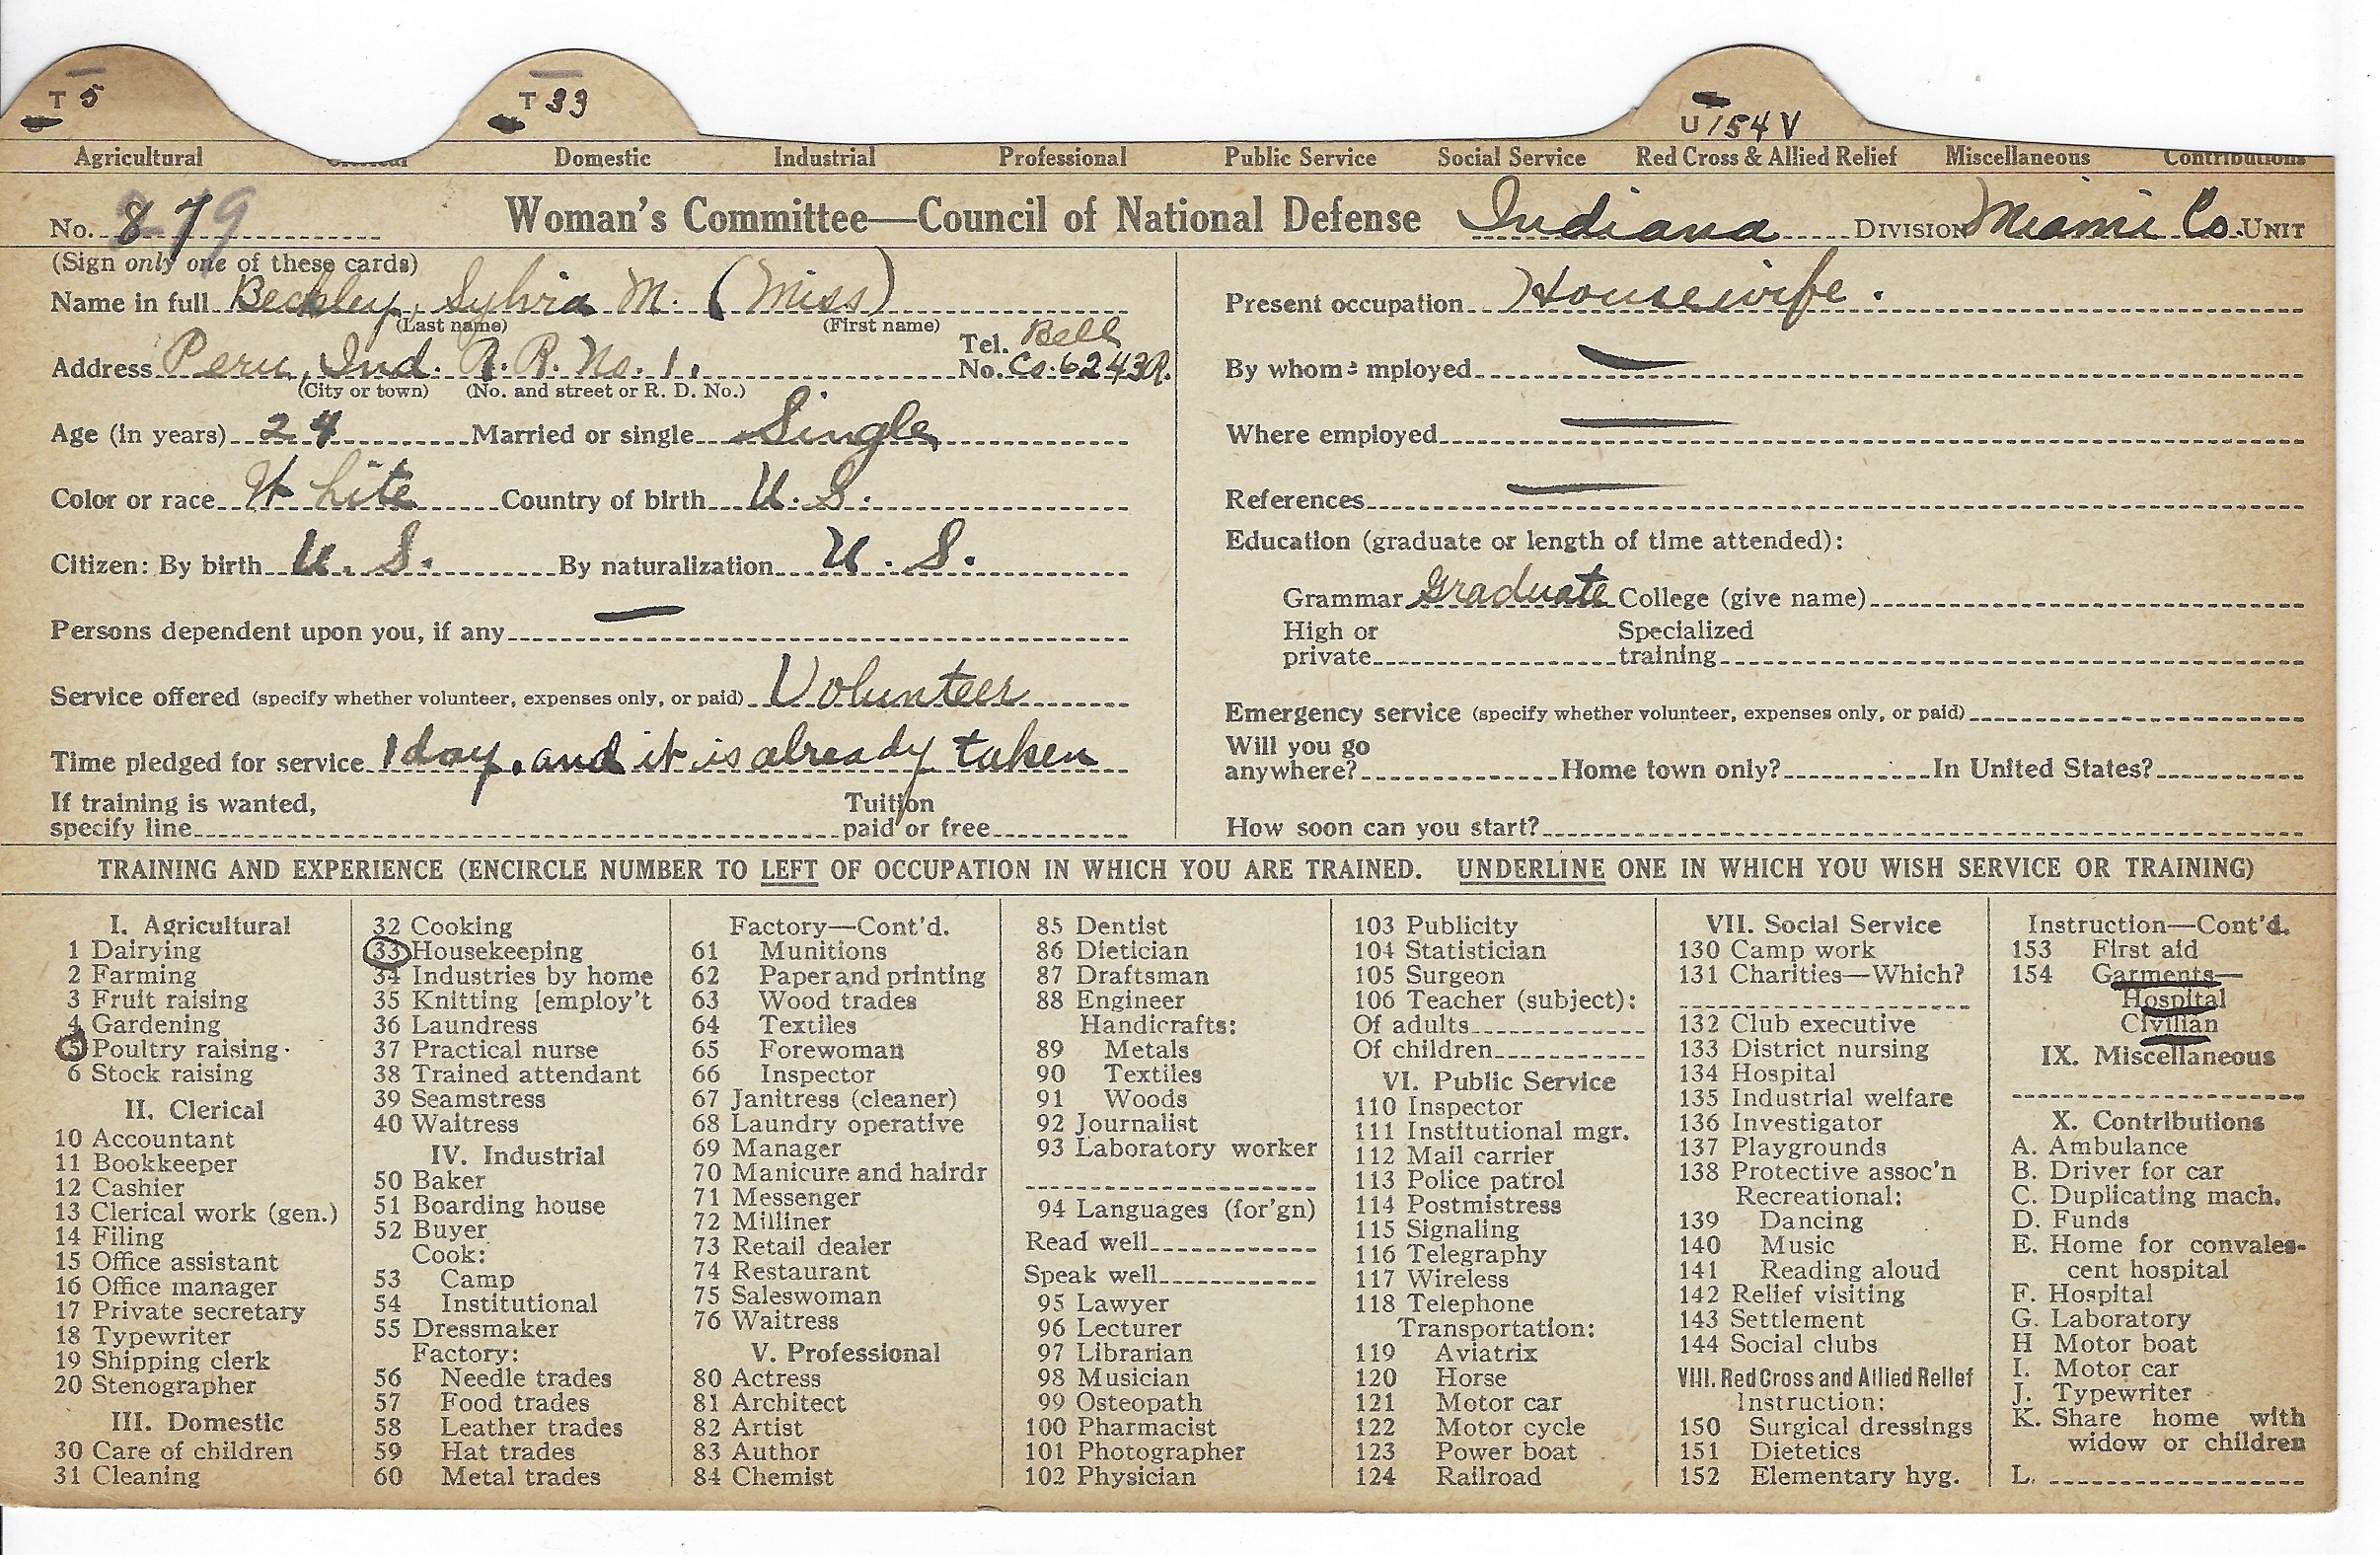 T 5
T 33
U 154 V
Agricultural Clerical Domestic Industrial Professional Public Service Social Service Red Cross & Allied Relief Miscellaneous Contributions
No. 879 Woman's Committee—Council of National Defense Indiana Division Miami Co. Unit
(Sign only one of these cards)
Name in full Beckley, Sylvia M. (Miss)
(Last name) (First name)
Address Peru, Ind. R. R. No. 1. Tel. No. Bell Co. 6243R.
(City or town) (No. and street or R. D. No.)
Age (in years) 24 Married or single Single
Color or race White Country of birth U. S.
Citizen: By birth U. S. By naturalization U. S.
Persons dependent upon you, if any —
Service offered (specify whether volunteer, expenses only, or paid) Volunteer
Time pledged for service 1 day, and it is already taken
If training is wanted, Tuition
specify line paid or free
Present occupation Housewife.
By whom employed —
Where employed —
References —
Education (graduate or length of time attended):
Grammar Graduate College (give name)
High or Specialized
private training
Emergency service (specify whether volunteer, expenses only, or paid)
Will you go
anywhere? Home town only? In United States?
How soon can you start?
TRAINING AND EXPERIENCE (ENCIRCLE NUMBER TO LEFT OF OCCUPATION IN WHICH YOU ARE TRAINED. UNDERLINE ONE IN WHICH YOU WISH SERVICE OR TRAINING)
I. Agricultural
1 Dairying
2 Farming
3 Fruit raising
4 Gardening
5 Poultry raising
6 Stock raising
II. Clerical
10 Accountant
11 Bookkeeper
12 Cashier
13 Clerical work (gen.)
14 Filing
15 Office assistant
16 Office manager
17 Private secretary
18 Typewriter
19 Shipping clerk
20 Stenographer
III. Domestic
30 Care of children
31 Cleaning
32 Cooking
33 Housekeeping
34 Industries by home
35 Knitting [employ't
36 Laundress
37 Practical nurse
38 Trained attendant
39 Seamstress
40 Waitress
IV. Industrial
50 Baker
51 Boarding house
52 Buyer
Cook:
53 Camp
54 Institutional
55 Dressmaker
Factory:
56 Needle trades
57 Food trades
58 Leather trades
59 Hat trades
60 Metal trades
Factory—Cont'd.
61 Munitions
62 Paper and printing
63 Wood trades
64 Textiles
65 Forewoman
66 Inspector
67 Janitress (cleaner)
68 Laundry operative
69 Manager
70 Manicure and hairdr
71 Messenger
72 Milliner
73 Retail dealer
74 Restaurant
75 Saleswoman
76 Waitress
V. Professional
80 Actress
81 Architect
82 Artist
83 Author
84 Chemist
85 Dentist
86 Dietician
87 Draftsman
88 Engineer
Handicrafts:
89 Metals
90 Textiles
91 Woods
92 Journalist
93 Laboratory worker
94 Languages (for'gn)
Read well
Speak well
95 Lawyer
96 Lecturer
97 Librarian
98 Musician
99 Osteopath
100 Pharmacist
101 Photographer
102 Physician
103 Publicity
104 Statistician
105 Surgeon
106 Teacher (subject):
Of adults
Of children
VI. Public Service
110 Inspector
111 Institutional mgr.
112 Mail carrier
113 Police patrol
114 Postmistress
115 Signaling
116 Telegraphy
117 Wireless
118 Telephone
Transportation:
119 Aviatrix
120 Horse
121 Motor car
122 Motor cycle
123 Power boat
124 Railroad
VII. Social Service
130 Camp work
131 Charities—Which?
132 Club executive
133 District nursing
134 Hospital
135 Industrial welfare
136 Investigator
137 Playgrounds
138 Protective assoc'n
Recreational:
139 Dancing
140 Music
141 Reading aloud
142 Relief visiting
143 Settlement
144 Social clubs
VIII. Red Cross and Allied Relief
Instruction:
150 Surgical dressings
151 Dietetics
152 Elementary hyg.
Instruction—Cont'd.
153 First aid
154 Garments—
Hospital
Civilian
IX. Miscellaneous
X. Contributions
A. Ambulance
B. Driver for car
C. Duplicating mach.
D. Funds
E. Home for convales-
cent hospital
F. Hospital
G. Laboratory
H Motor boat
I. Motor car
J. Typewriter
K. Share home with
widow or children
L.